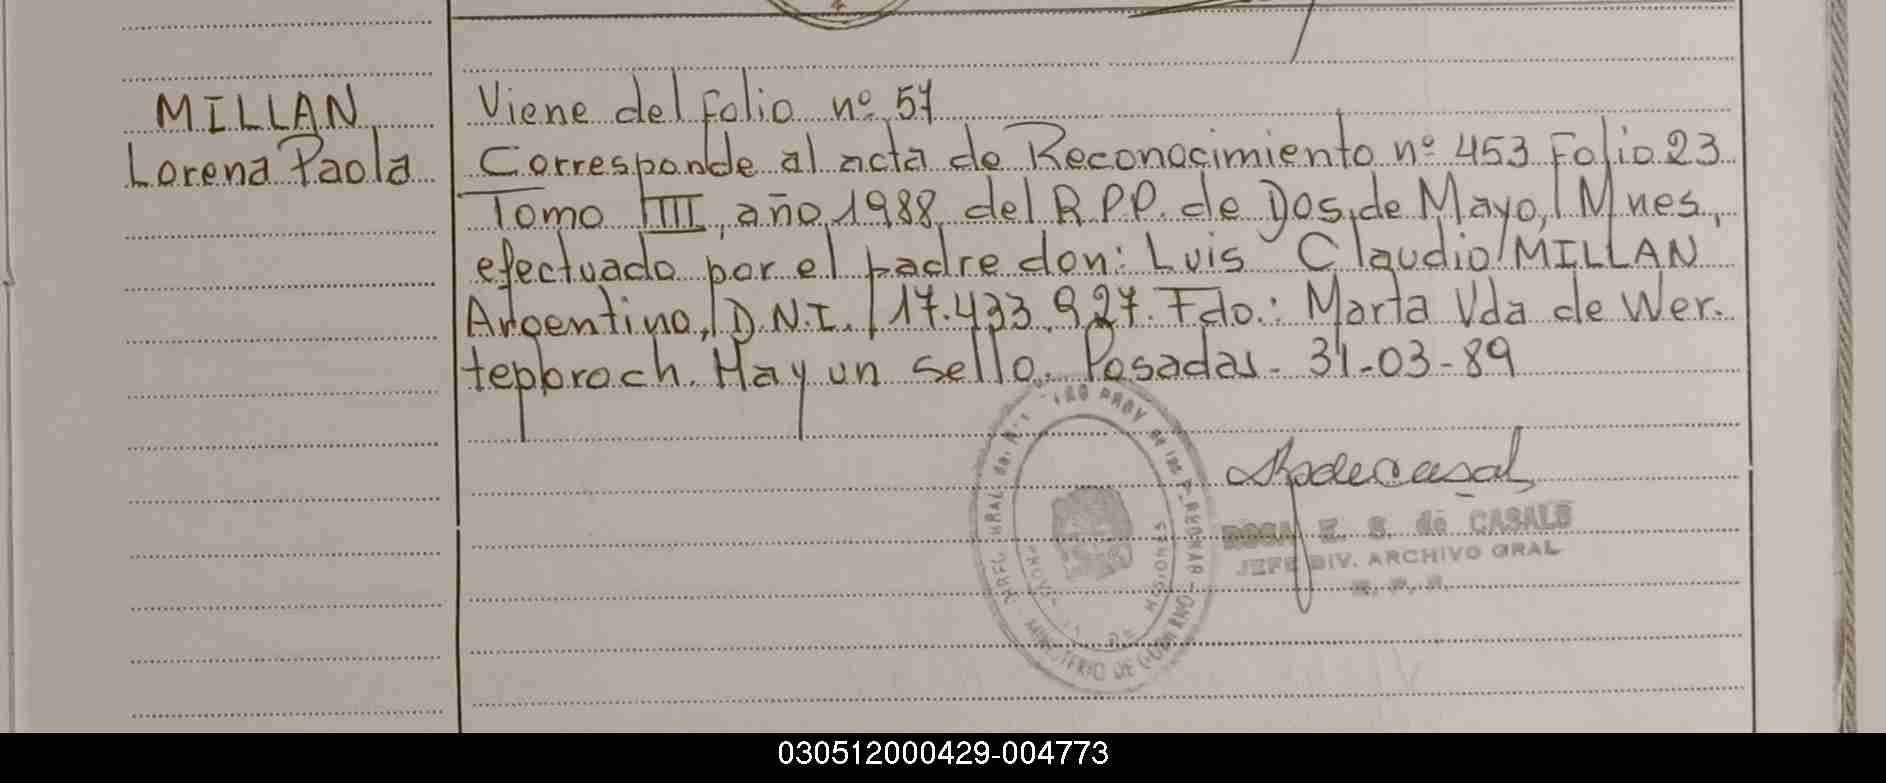 MILLAN
Lorena Paola
Viene del folio nº 57
Corresponde al acta de Reconocimiento nº 453 Folio 23
Tomo III, año 1988 del R.P.P. de Dos de Mayo, Mnes,
efectuado por el padre don: Luis Claudio MILLAN
Argentino, D.N.I. 17.433.927. Fdo.: Marta Vda de Wer-
tepbroch. Hay un sello. Posadas - 31-03-89
ROSA E. S. de CASALS
JEFE DIV. ARCHIVO GRAL
R. P. P.
MINISTERIO DE GOBIERNO
MISIONES
030512000429-004773